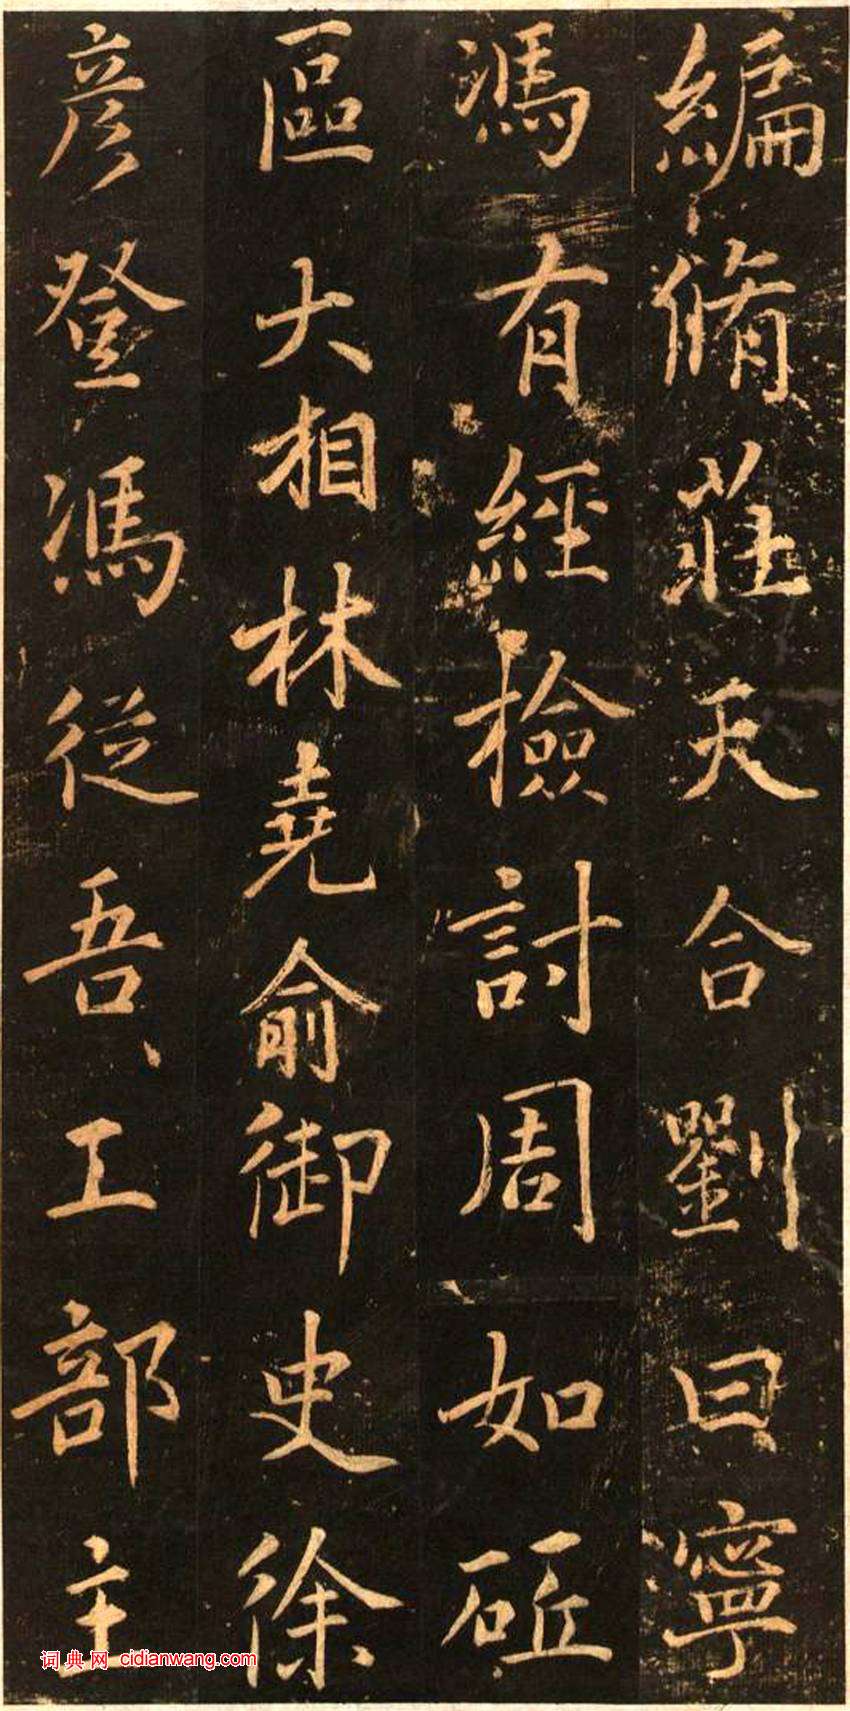 編脩莊天合劉曰寧
馮有經檢討周如砥
區大相林堯俞御史徐
彦登馮從吾工部主
词典网 cidianwang.com